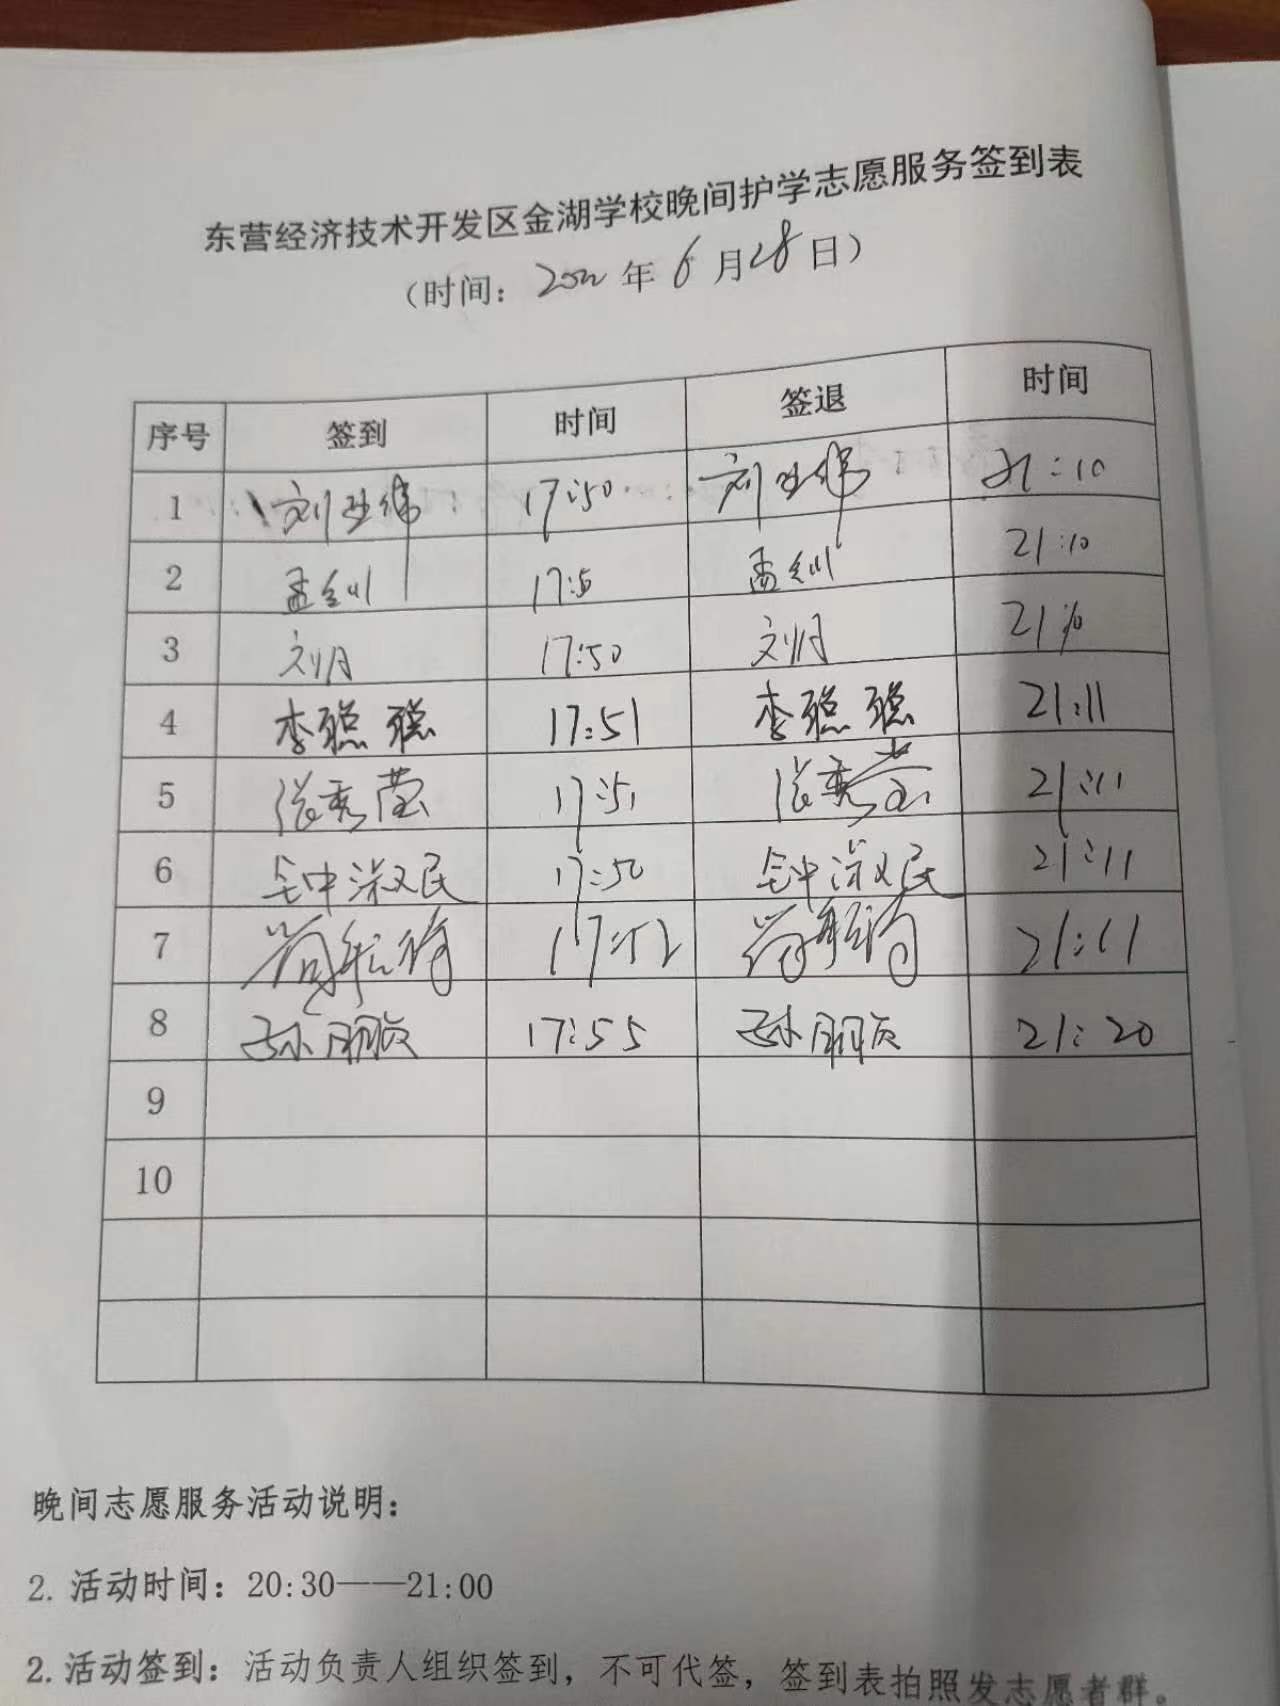 东营经济技术开发区金湖学校晚间护学志愿服务签到表
（时间： 年 6 月 28 日）
序号 签到 时间 签退 时间
1 刘亚伟 17:50 刘亚伟 21:10
2 孟剑 17:5 孟剑 21:10
3 刘月 17:50 刘月 21:10
4 李聪聪 17:51 李聪聪 21:11
5 张秀莹 17:51 张秀莹 21:11
6 钟淑民 17:50 钟淑民 21:11
7 17:52 21:11
8 孙朋页 17:55 孙朋页 21:20
9
10
晚间志愿服务活动说明：
2. 活动时间：20:30——21:00
2. 活动签到：活动负责人组织签到，不可代签，签到表拍照发志愿者群。